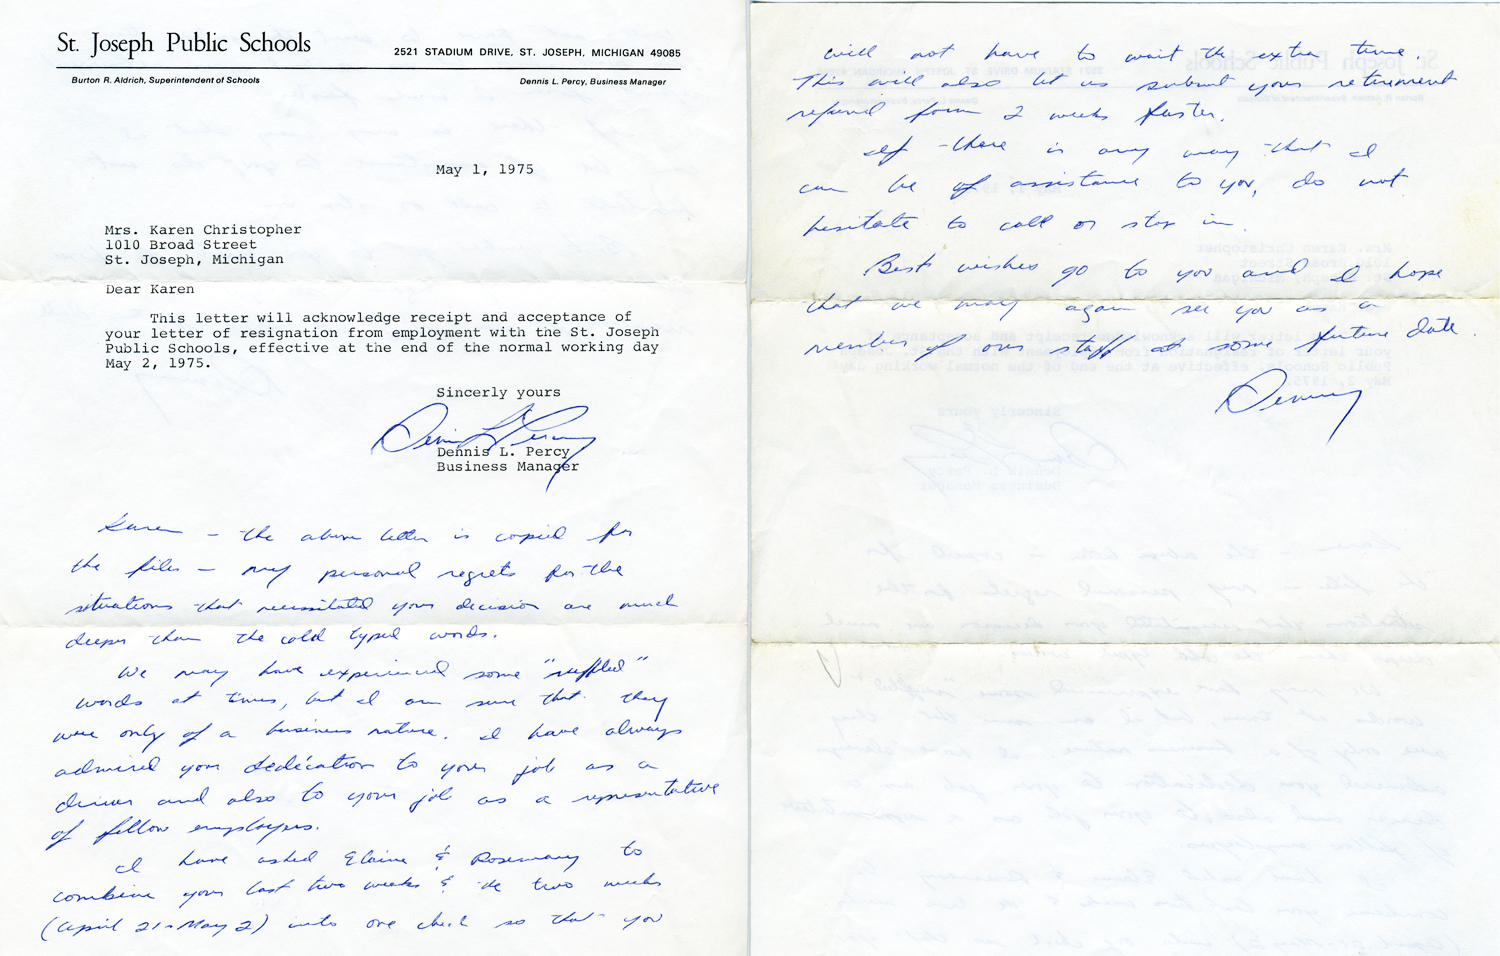 St. Joseph Public Schools
2521 STADIUM DRIVE, ST. JOSEPH, MICHIGAN 49085
Burton R. Aldrich, Superintendent of Schools
Dennis L. Percy, Business Manager
May 1, 1975
Mrs. Karen Christopher
1010 Broad Street
St. Joseph, Michigan
Dear Karen
This letter will acknowledge receipt and acceptance of
your letter of resignation from employment with the St. Joseph
Public Schools, effective at the end of the normal working day
May 2, 1975.
Sincerly yours
Dennis L. Percy
Dennis L. Percy
Business Manager
Karen - the above letter is copied for
the files - my personal regrets for the
situations that necessitated your decision are much
deeper than the cold typed words.
We may have experienced some "ruffled"
words at times, but I am sure that they
were only of a business nature. I have always
admired your dedication to your job as a
driver and also to your job as a representative
of fellow employees.
I have asked Elaine & Rosemary to
combine your last two weeks & the two weeks
(April 21 - May 2) into one check so that you
will not have to wait the extra time.
This will also let us submit your retirement
refund form 2 weeks faster.
If there is any way that I
can be of assistance to you, do not
hesitate to call or stop in.
Best wishes go to you and I hope
that we may again see you as a
member of our staff at some future date.
Denny